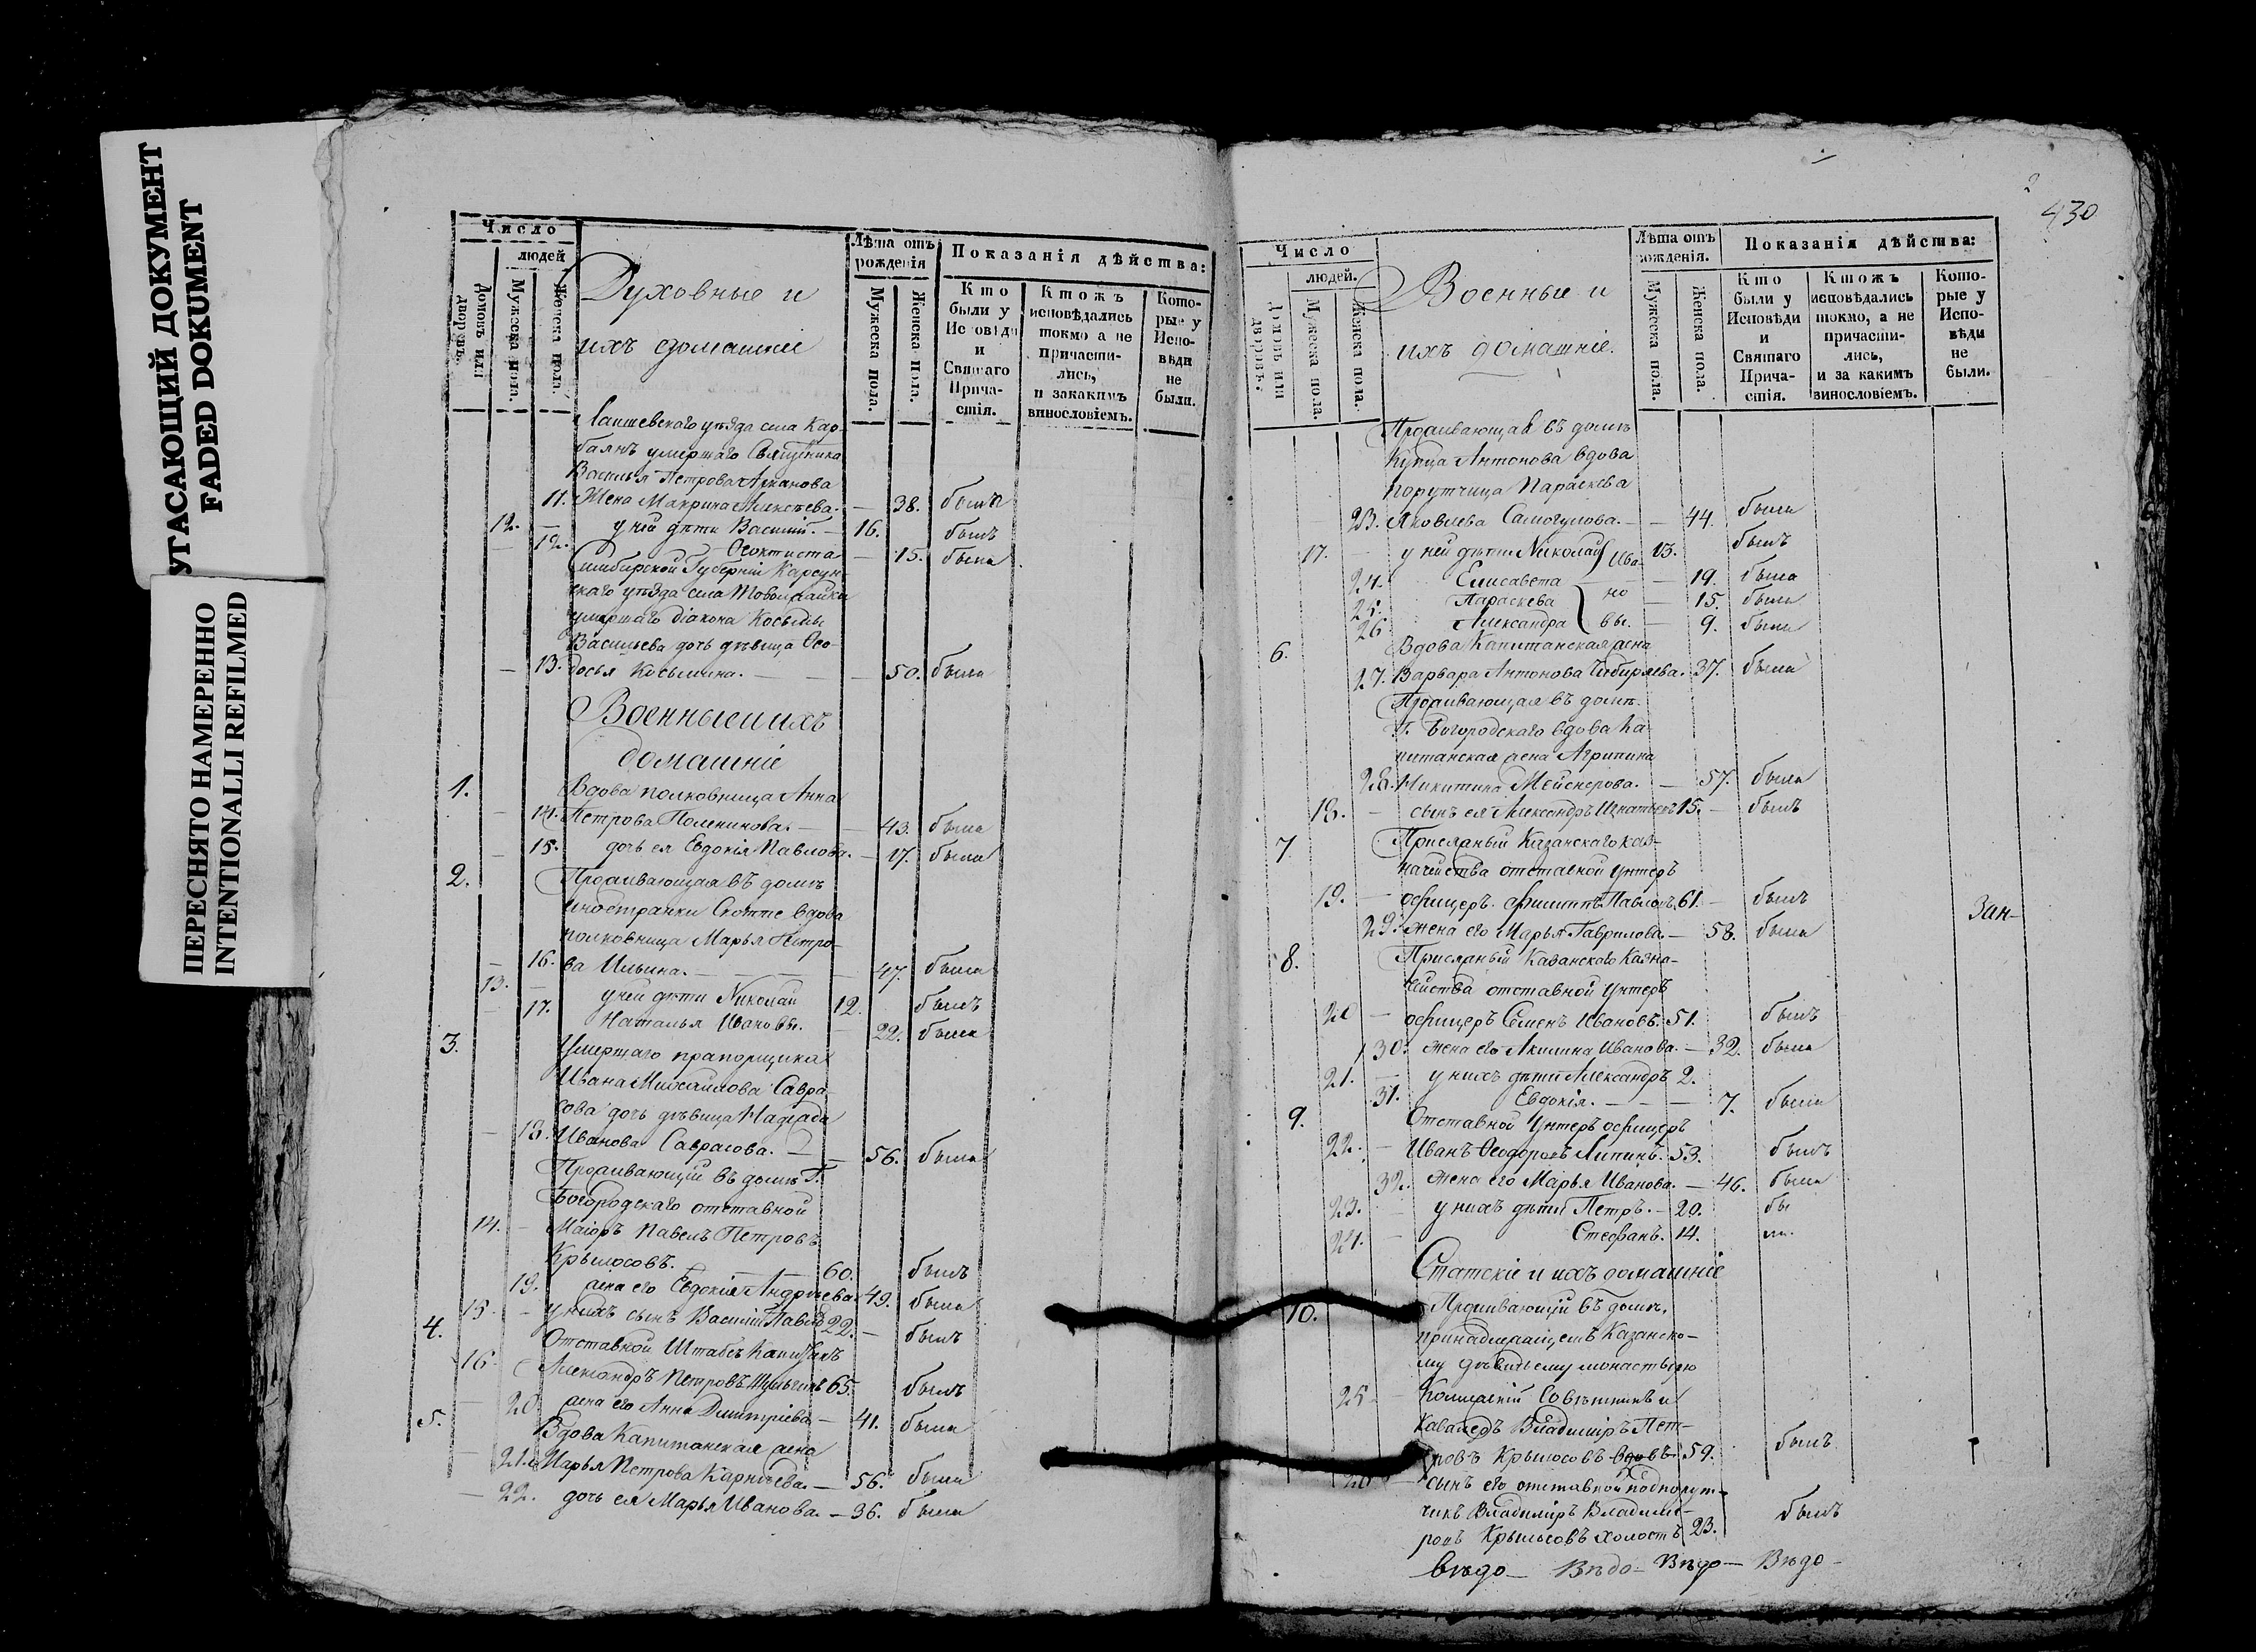 УГАСАЮЩИЙ ДОКУМЕНТ
FADED DOKUMENT
ПЕРЕСНЯТО НАМЕРЕННО
INTENTIONALLI REFILMED
Число
людей
Домовъ или дворовъ.
Мужеска пола.
Женска пола.
Духовные и
ихъ домашніе
Лѣта отъ
рожденія
Мужеска пола.
Женска пола.
Показанія дѣйства:
Кто
были у
Исповѣди
и
Святаго
Прича-
стія.
Ктожъ
исповѣдались
токмо а не
причасти-
лись,
и закакимъ
винословіемъ.
Кото-
рые у
Испо-
вѣди
не
были.
Лаишевскаго уѣзда села Кар-
баянъ умершаго Священика
Василья Петрова
11. Жена Макрина Алексѣева. — 38. была
12. — у ней дѣти Василій. — 16. былъ
— 12. Ѳеоктиста — 15. была
Симбирской Губерніи Карсун-
скаго уѣзда села
умершаго діакона Козьмы
Васильева дочь дѣвица Ѳео-
— 13. досья Козьмина. — — 50. была
Военные и ихъ
домашніе
1. Вдова полковница Анна
— 14. Петрова — — 43. была
— 15. дочь ея Евдокія Павлова. — 17. была
2. Проживающая въ домѣ
иностранки вдова
полковница Марья Петро-
— 16. ва Ильина. — — — — 47. была
13. — у ней дѣти Николай 12. былъ
— 17. Наталья Ивановы. — 22. была
3. Умершаго прапорщика
Ивана Михайлова Савра-
сова дочь дѣвица Надежда
— 18. Иванова Саврасова. — — 56. была
Проживающій въ домѣ Г.
Богородскаго отставной
14. — Маіоръ Павелъ Петровъ
Крылосовъ. — — 60. былъ
19. жена его Евдокія Андреева. 49. была
15. — у нихъ сынъ Василій 22. — былъ
4. Отставной Штабсъ Капитанъ
16. Александръ Петровъ 65. былъ
— 20. жена его Анна Дмитріева — 41. была
5. Вдова Капитанская жена
— 21. Марья Петрова — 56. была
— 22. дочь ея Марья Иванова. — 36. была
2
430
Число
людей.
Домовъ или дворовъ.
Мужеска пола.
Женска пола.
Военные и
ихъ домашніе.
Лѣта отъ
рожденія.
Мужеска пола.
Женска пола.
Показанія дѣйства:
Кто
были у
Исповѣди
и
Святаго
Прича-
стія.
Ктожъ
исповѣдались
токмо, а не
причасти-
лись,
и за какимъ
винословіемъ.
Кото-
рые у
Испо-
вѣди
не
были.
Проживающая въ домѣ
Купца Антонова вдова
порутчица Параскева
23. Яковлева Самочулова. — — 44. была
17. — у ней дѣти Николай Ива- 13. былъ
24. Елисавета — — — 19. была
25. Параскева но — 15. была
26 Александра вы. — 9. была
6. Вдова Капитанская жена
27. Варвара Антонова 37. была
Проживающая въ домѣ
Г. Богородскаго вдова Ка-
питанская жена Агрипина
28. Никитина Мейснерова. — 57. была
18. — сынъ ея Александръ Игнатьевъ 15. — былъ
7 Присланый Казанскаго каз-
начейства отставной Унтеръ
19. — офицеръ Филиппъ Павловъ. 61. — былъ
29. жена его Марья Гаврилова. — 58. была
8. Присланый Казанскаго Казна-
чейства отставной Унтеръ
20 — офицеръ Семенъ Ивановъ. 51. былъ
30. жена его Акилина Иванова. — 32. была
21. — у нихъ дѣти Александръ 2.
31. Евдокія. — — — 7. была
9. Отставной Унтеръ офицеръ
22. — Иванъ Ѳеодоровъ Липинъ. 53. былъ
32. жена его Марья Иванова. — 46. была
23. — у нихъ дѣти Петръ. — 20. бы
24. — Стефанъ. 14. ли.
Статскіе и ихъ домашніе
10. Проживающій въ домѣ,
принадлежащемъ Казанско-
му дѣвичьему монастырю
25 — Совѣтникъ и
Кавалеръ Владиміръ Пет-
ровъ Крылосовъ вдовъ 59. былъ
26 — сынъ его отставной подпорут-
чикъ Владиміръ Владими-
ровъ Крылосовъ холостъ 23. былъ
Зан-
Вѣдо — Вѣдо — Вѣдо — Вѣдо —